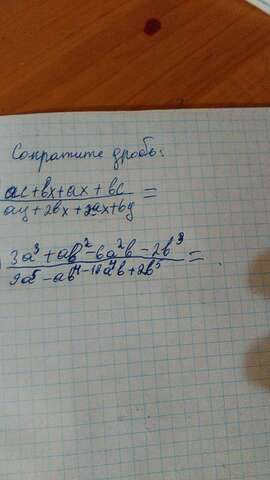 Сократите дробь:
ac+bx+ax+bc
ay+2bx+2ax+by =
3a³+ab²-6a²b-2b³
9a⁵-ab⁴-18a⁴b+2b⁵ =